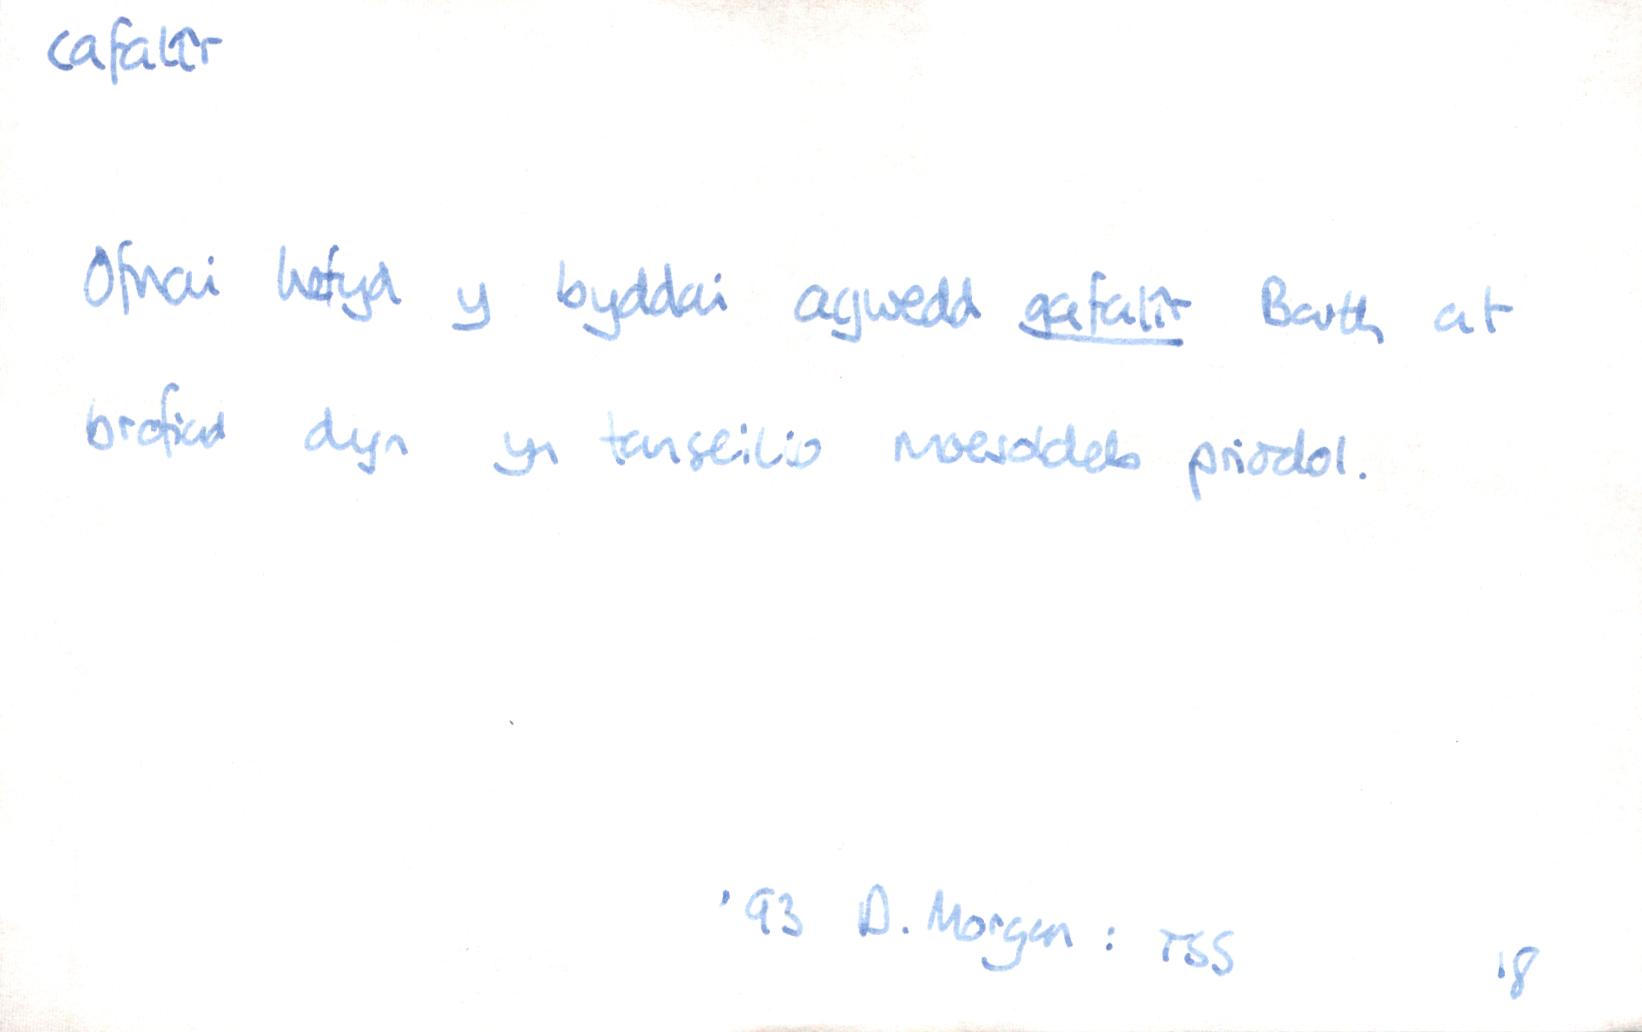 cafalîr
Ofnai hefyd y byddai agwedd gafalîr Barth at
brofiad dyn yn tanseilio moesoldeb priodol.
'93 D. Morgan: TSS 18